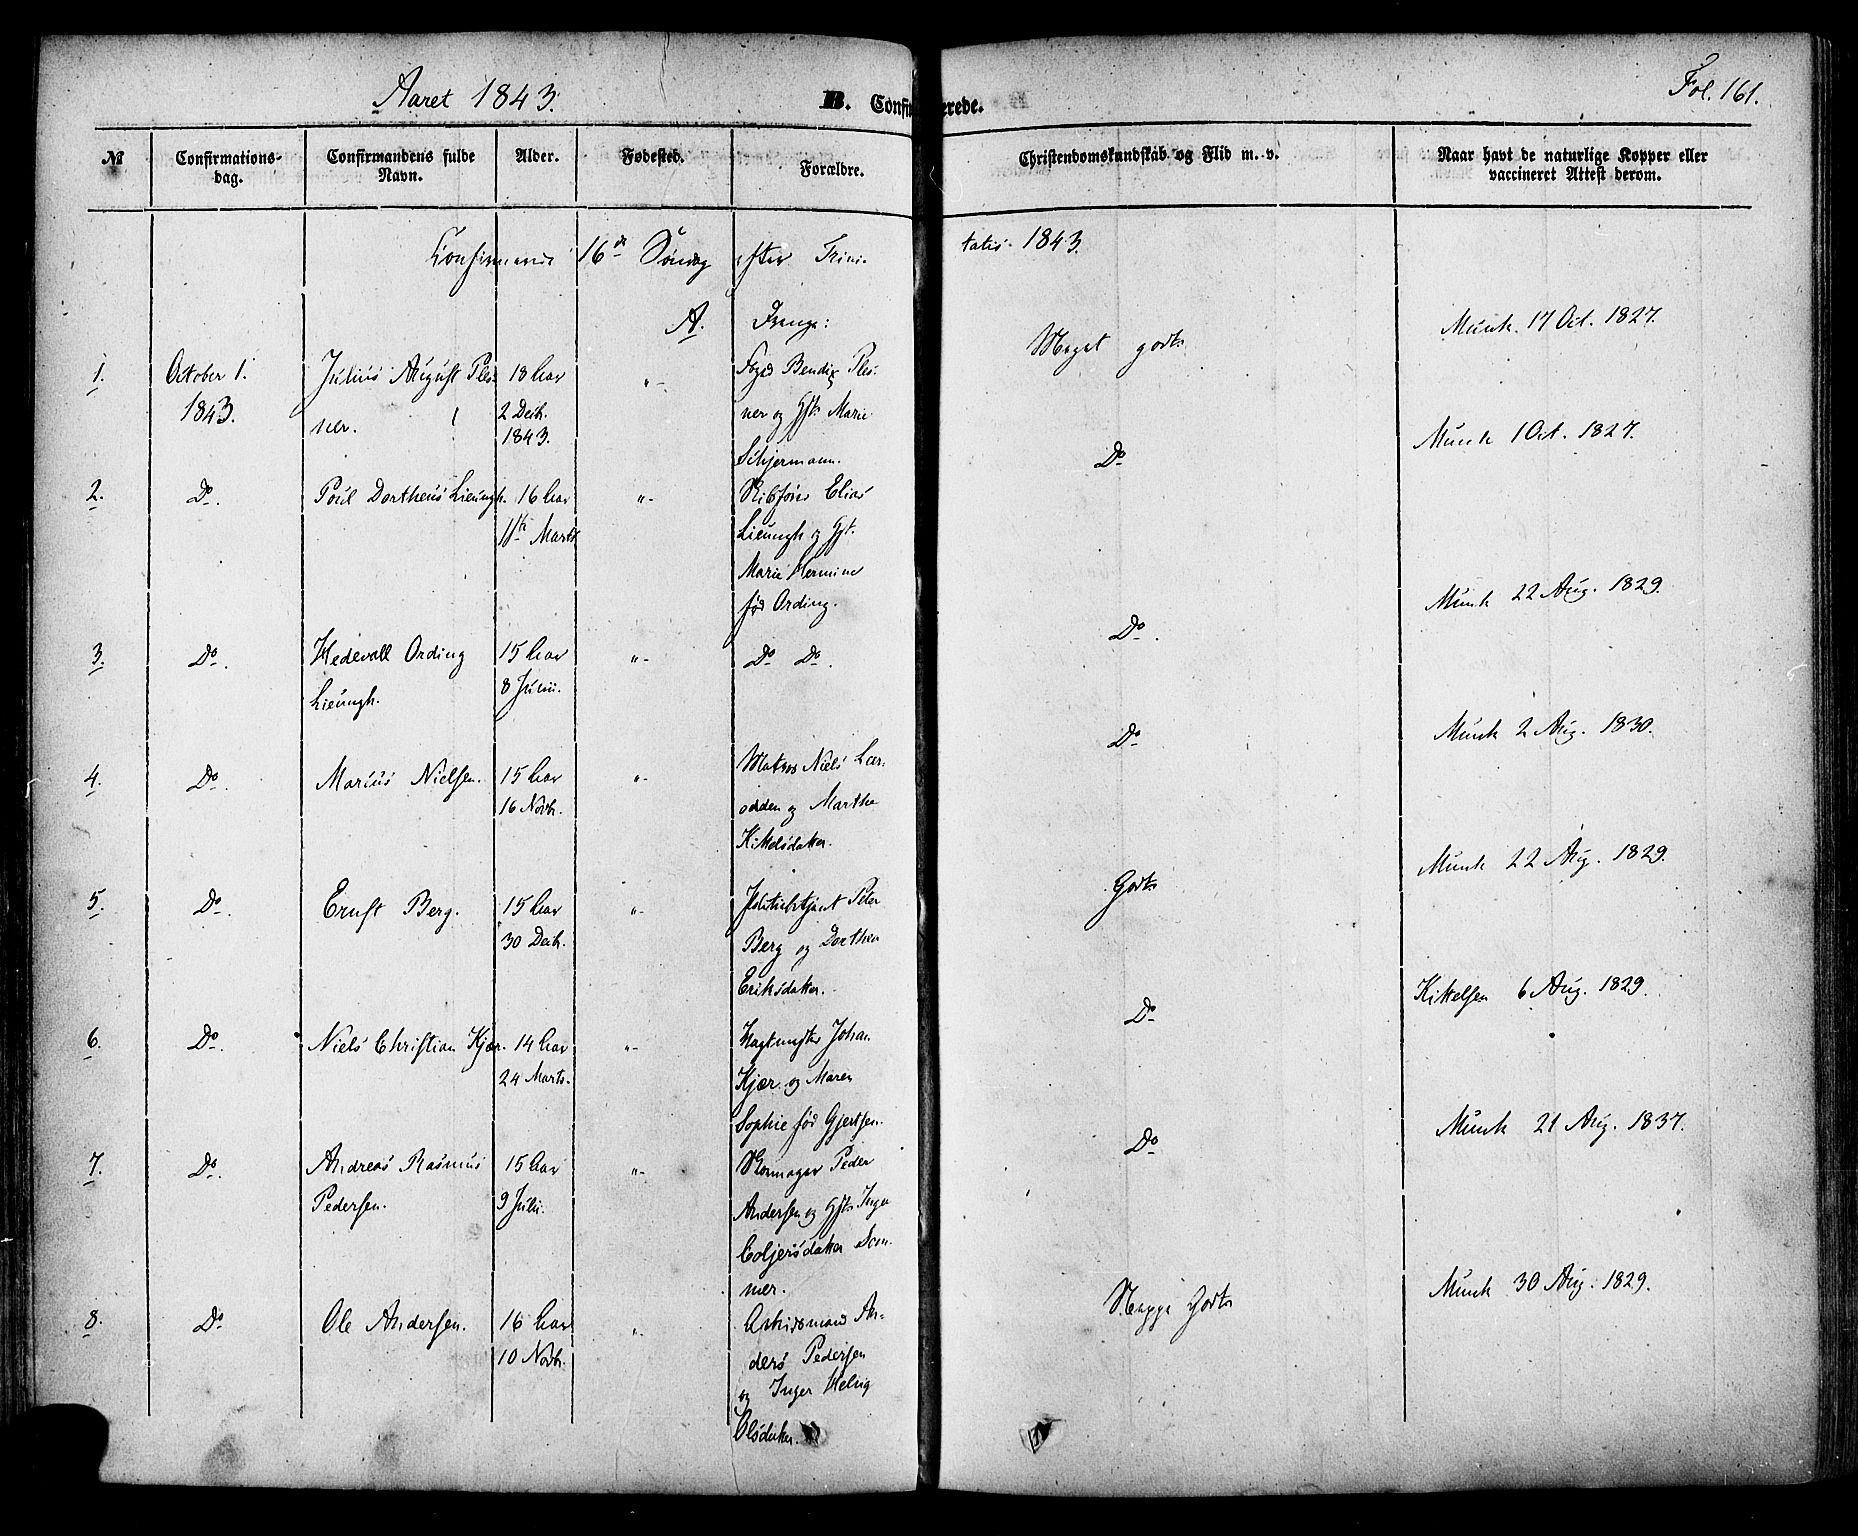 Aaret 1843.
B. Confir erede.
Fol. 161.
№
Confirmations-
dag.
Confirmandens fulde
Navn.
Alder.
Fødested.
Forældre.
Christendomskundskab og Flid m. v.
Naar havt de naturlige Kopper eller
vaccineret Attest derom.
16de Søndag efter Trini-
tatis 1843.
A. Drenge:
1.
October 1.
1843.
Julius August Ples-
ner.
18 Aar
2 Decb.
1843.
"-
Foged Bendix Ples-
ner og Hst. Marie
Schjermann.
Meget godt
Munk 17 Oct. 1827.
2.
Do.
Poul Dortheus Lieungh.
16 Aar
11te Marts
"-
Elias
Lieungh og Hst.
Marie Hermine
fød Ording.
Do
Munk 1 Oct. 1827.
3.
Do.
Hedevall Ording
Lieungh.
15 Aar
8 Julii.
"-
Do Do.
Do.
Munk 22 Aug. 1829.
4.
Do.
Marius Nielsen.
15 Aar
16 Novb.
"-
Matros Niels Lar-
odden og Marthe
Kittelsdatter.
Do
Munk 2 Aug. 1830.
5.
Do.
Ernst Berg.
15 Aar
30 Decb.
"-
Peter
Berg og Dorthea
Eriksdatter.
Godt
Munk 22 Aug. 1829.
6.
Do.
Niels Christian Kjær.
14 Aar
24 Marts.
"-
Johan
Kjær og Maren
Sophie fød Gjertsen.
Do
Kittelsen 6 Aug. 1829.
7.
Do.
Andreas Rasmus
Pedersen.
15 Aar
9 Julii.
"-
Skomager Peder
Andersen og Hst. Inger
Do
Munk 21 Aug. 1837.
8.
Do
Ole Andersen.
16 Aar
10 Novb.
"-
Arbeidsmand An-
ders Pedersen
og Inger Helvig
Olsdatter.
Neppe Godt
Munk 30 Aug. 1829.